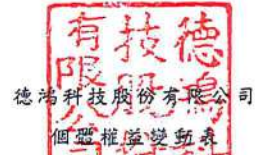 德鴻科技股份有限公司
個體權益變動表